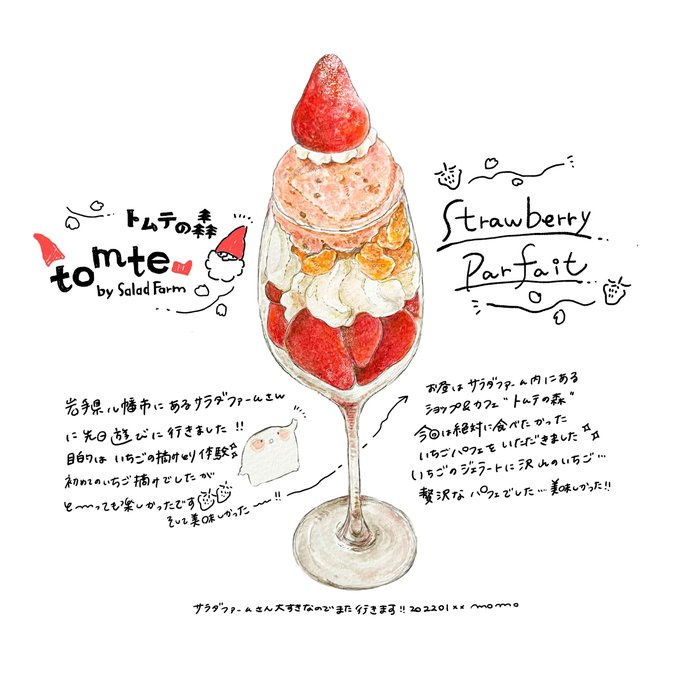 トムテの森
tomte
by Salad Farm
Strawberry
Parfait
岩手県八幡市にあるサラダファームさん
に先日遊びに行きました!!
目的はいちごの摘みとり体験
初めてのいちご摘みでしたが
と〜っても楽しかったです
そして美味しかった〜!!
お昼はサラダファーム内にある
ショップ&カフェ"トムテの森"
今回は絶対に食べたかった
いちごパフェをいただきました
いちごのジェラートに沢山のいちご…
贅沢なパフェでした…美味しかった!!
サラダファームさん大すきなのでまた行きます!! 202201xx momo